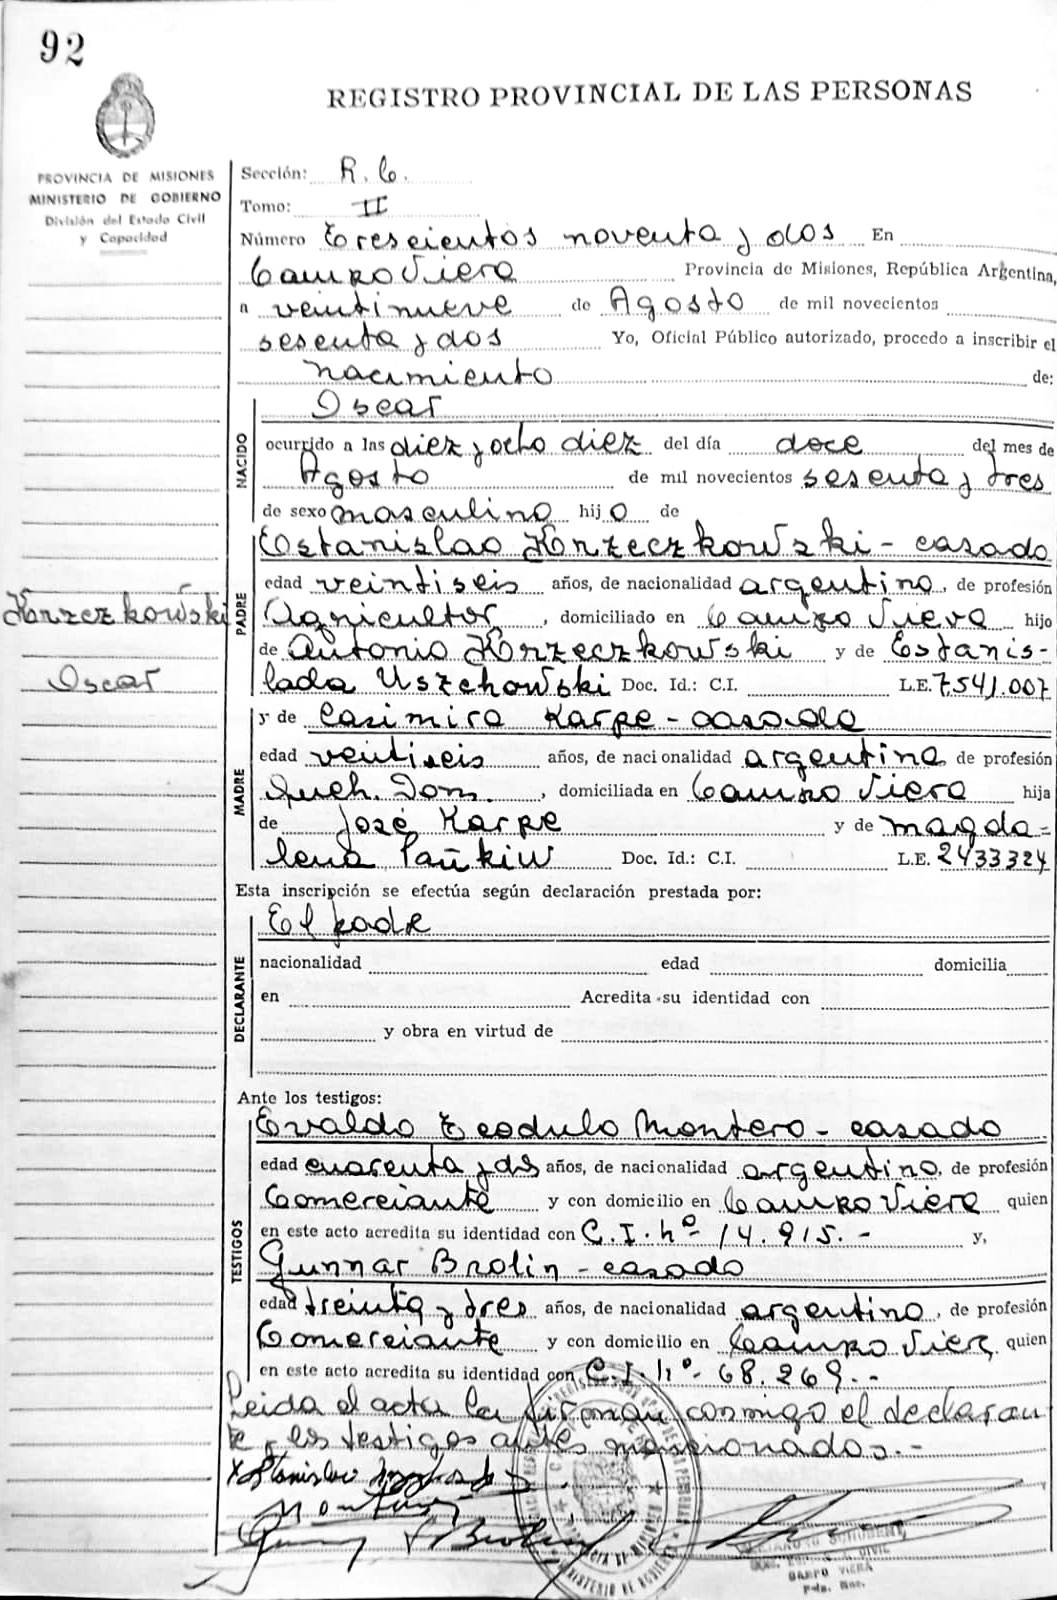 92
REGISTRO PROVINCIAL DE LAS PERSONAS
PROVINCIA DE MISIONES
MINISTERIO DE GOBIERNO
División del Estado Civil
y Capacidad
Sección: R. C.
Tomo: II
Número Trescientos noventa y dos En
Campo Viera Provincia de Misiones, República Argentina,
a veintinueve de Agosto de mil novecientos
sesenta y dos Yo, Oficial Público autorizado, procedo a inscribir el
nacimiento de:
Oscar
NACIDO
ocurrido a las diez y ocho diez del día doce del mes de
Agosto de mil novecientos sesenta y tres
de sexo masculino hijo de
Estanislao Krzeczkowski - casado
PADRE
edad veintiseis años, de nacionalidad argentino, de profesión
Agricultor, domiciliado en Campo Viera hijo
de Antonio Krzeczkowski y de Estanis-
lada Uszchowski Doc. Id.: C.I. L.E. 7.541.007
Krzezkowski
Oscar
y de Casimira Karpe - casada
MADRE
edad veintiseis años, de nacionalidad argentina de profesión
Queh. Dom., domiciliada en Campo Viera hija
de José Karpe y de Magda=
lena Pañkiw Doc. Id.: C.I. L.E. 2433324
Esta inscripción se efectúa según declaración prestada por:
El padre
DECLARANTE
nacionalidad edad domicilia
en Acredita su identidad con
y obra en virtud de
Ante los testigos:
Evaldo Teodulo Montero - casado
TESTIGOS
edad cuarenta y dos años, de nacionalidad argentino, de profesión
Comerciante y con domicilio en Campo Viera quien
en este acto acredita su identidad con C.I. nº 14.915.- y,
Gunnar Brolin - casado
edad treinta y tres años, de nacionalidad argentino, de profesión
Comerciante y con domicilio en Campo Viera quien
en este acto acredita su identidad con C.I. nº 68.269.-
Leida el acta la firman conmigo el declaran
te y los testigos antes mencionados.-
CAMPO VIERA